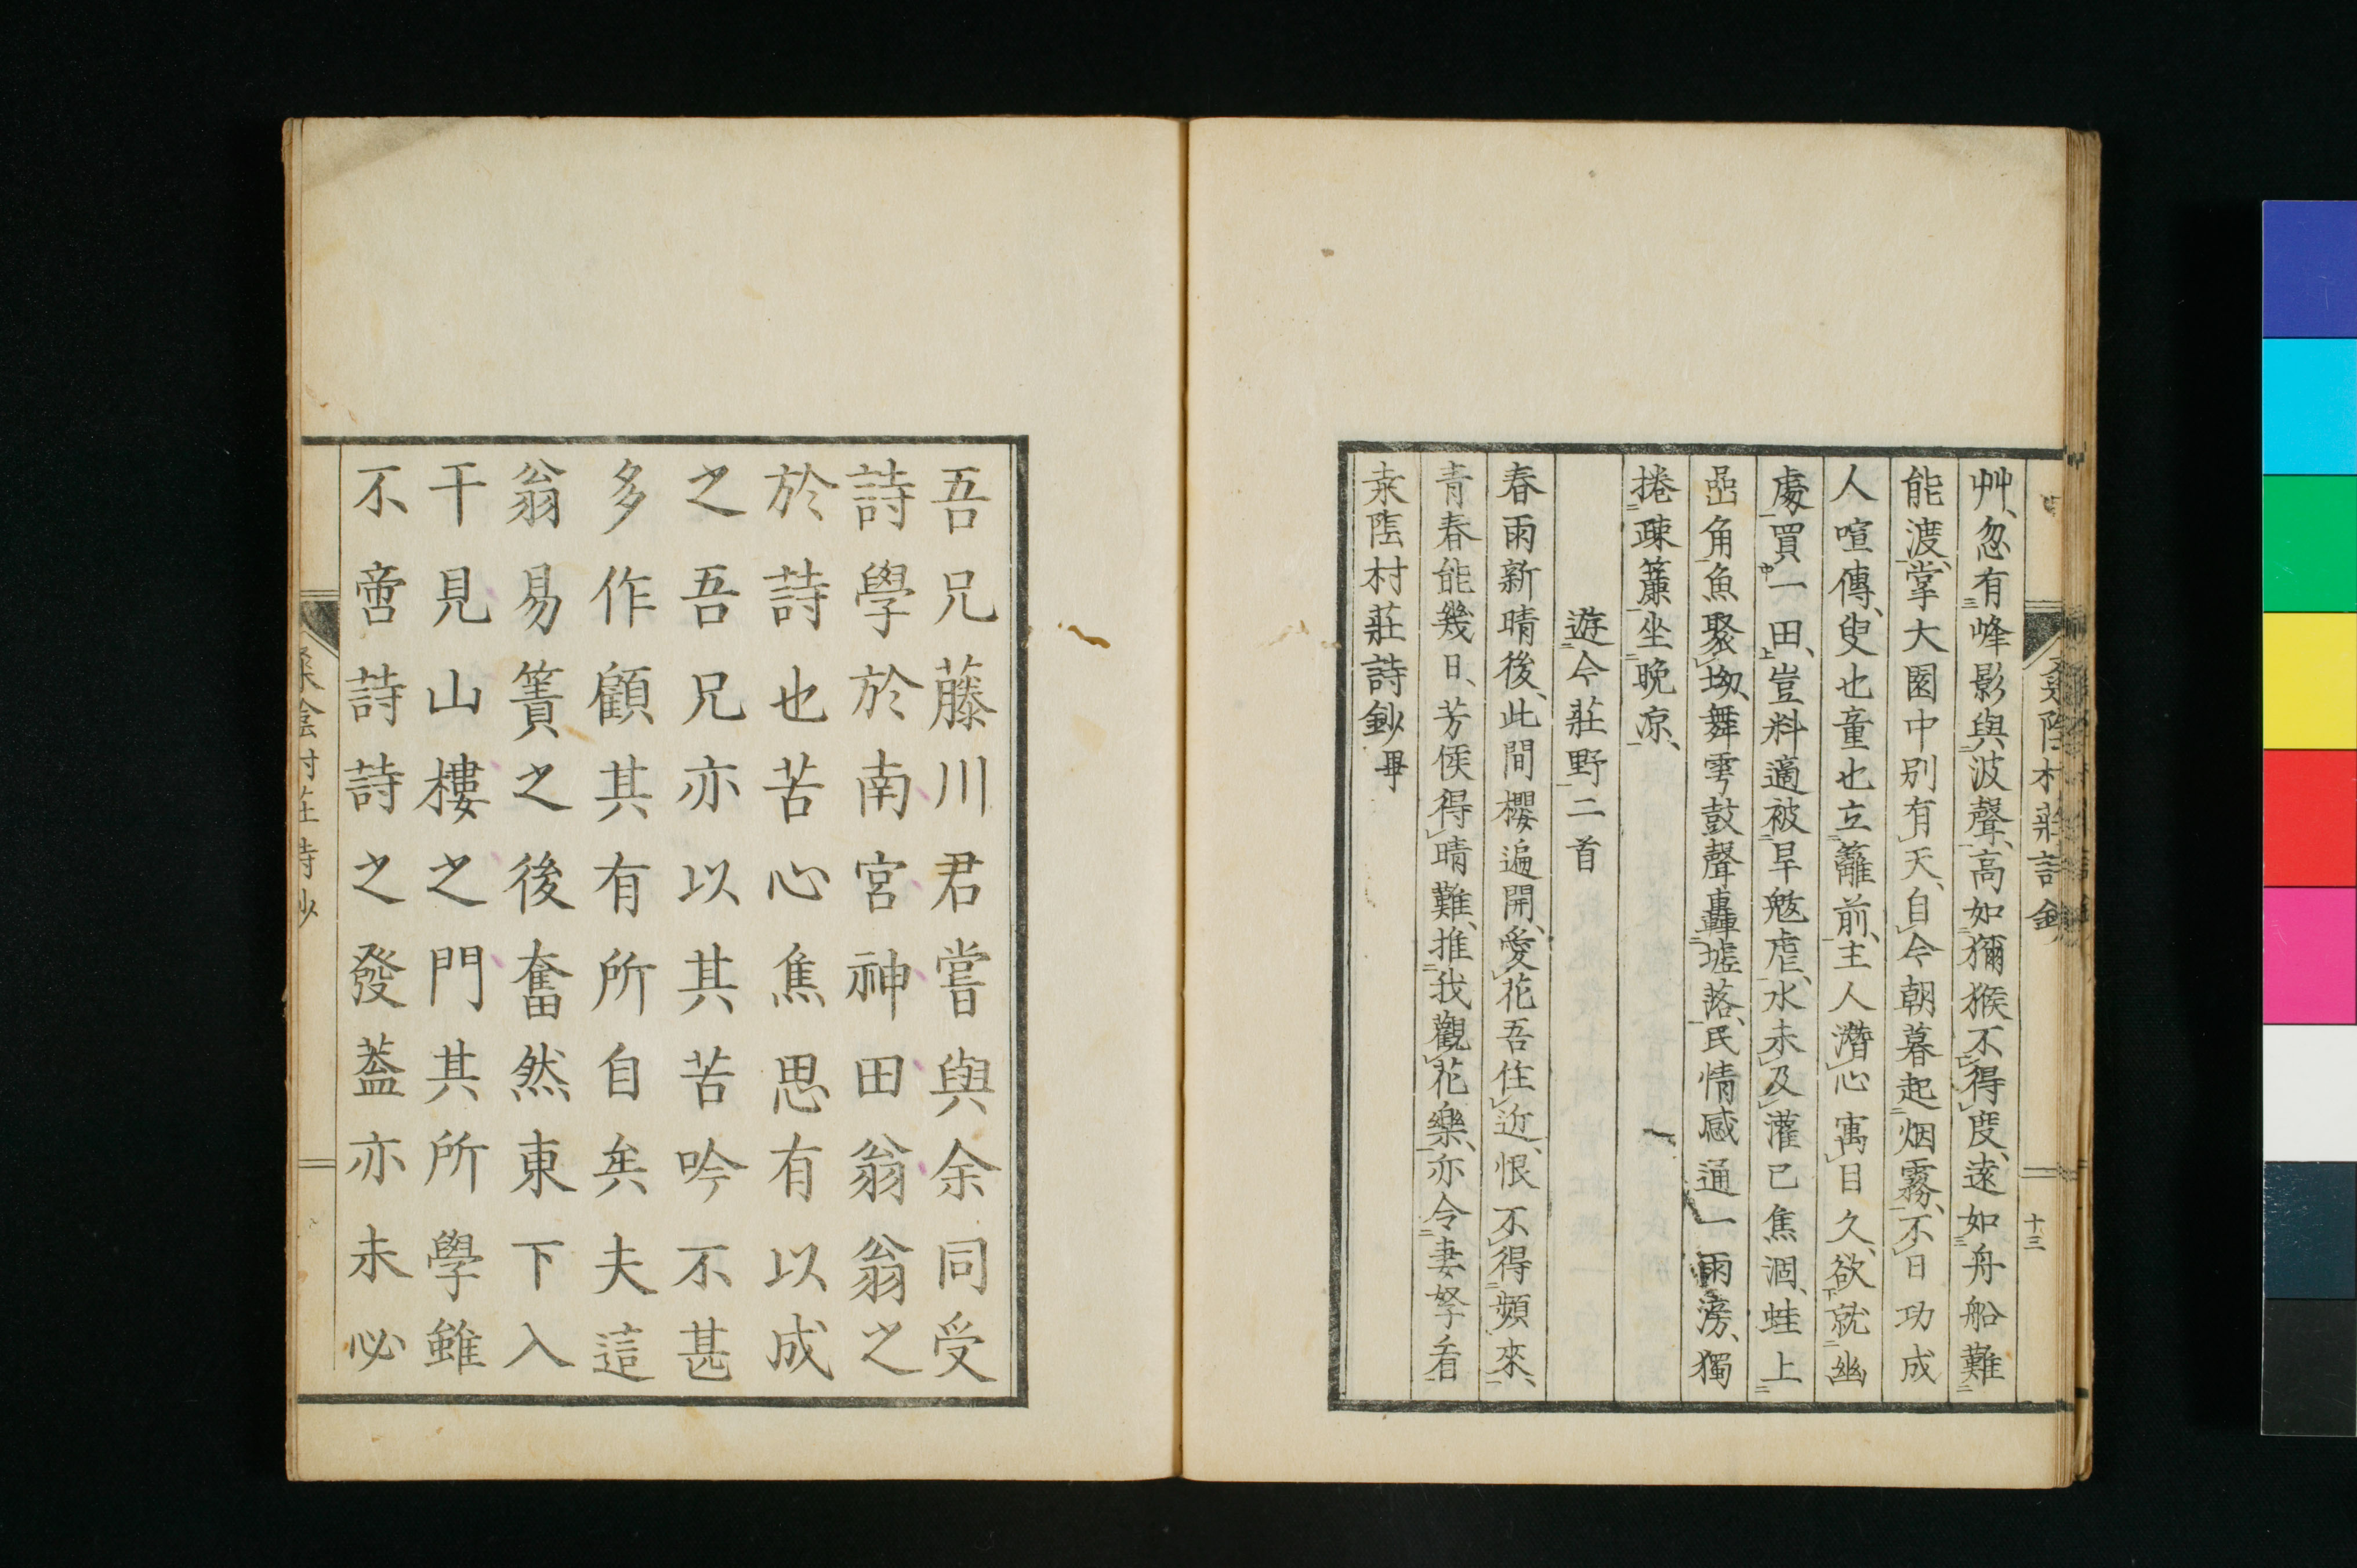 艸忽有峰影與波聲高如獼猴不得度遠如舟船難
能渡掌大園中別有天自今朝暮起烟霧不日功成
人喧傳叟也童也立籬前主人潛心寓目久欲就幽
處買一田豈料適被旱魃虐水未及灌已焦涸蛙上
嵒角魚聚坳舞雩鼓聲轟墟落民情感通一雨滂獨
捲疎簾坐晩凉
遊今莊野二首
春雨新晴後此間櫻遍開愛花吾住近恨不得頻來
青春能幾日芳候得晴難推我觀花樂亦令妻孥看
桒陰村莊詩鈔畢
桒陰村莊詩鈔
十三
吾兄藤川君嘗與余同受
詩學於南宮神田翁翁之
於詩也苦心焦思有以成
之吾兄亦以其苦吟不甚
多作顧其有所自矣夫這
翁易簀之後奮然東下入
干見山樓之門其所學雖
不啻詩詩之發蓋亦未必
桒陰村莊詩鈔